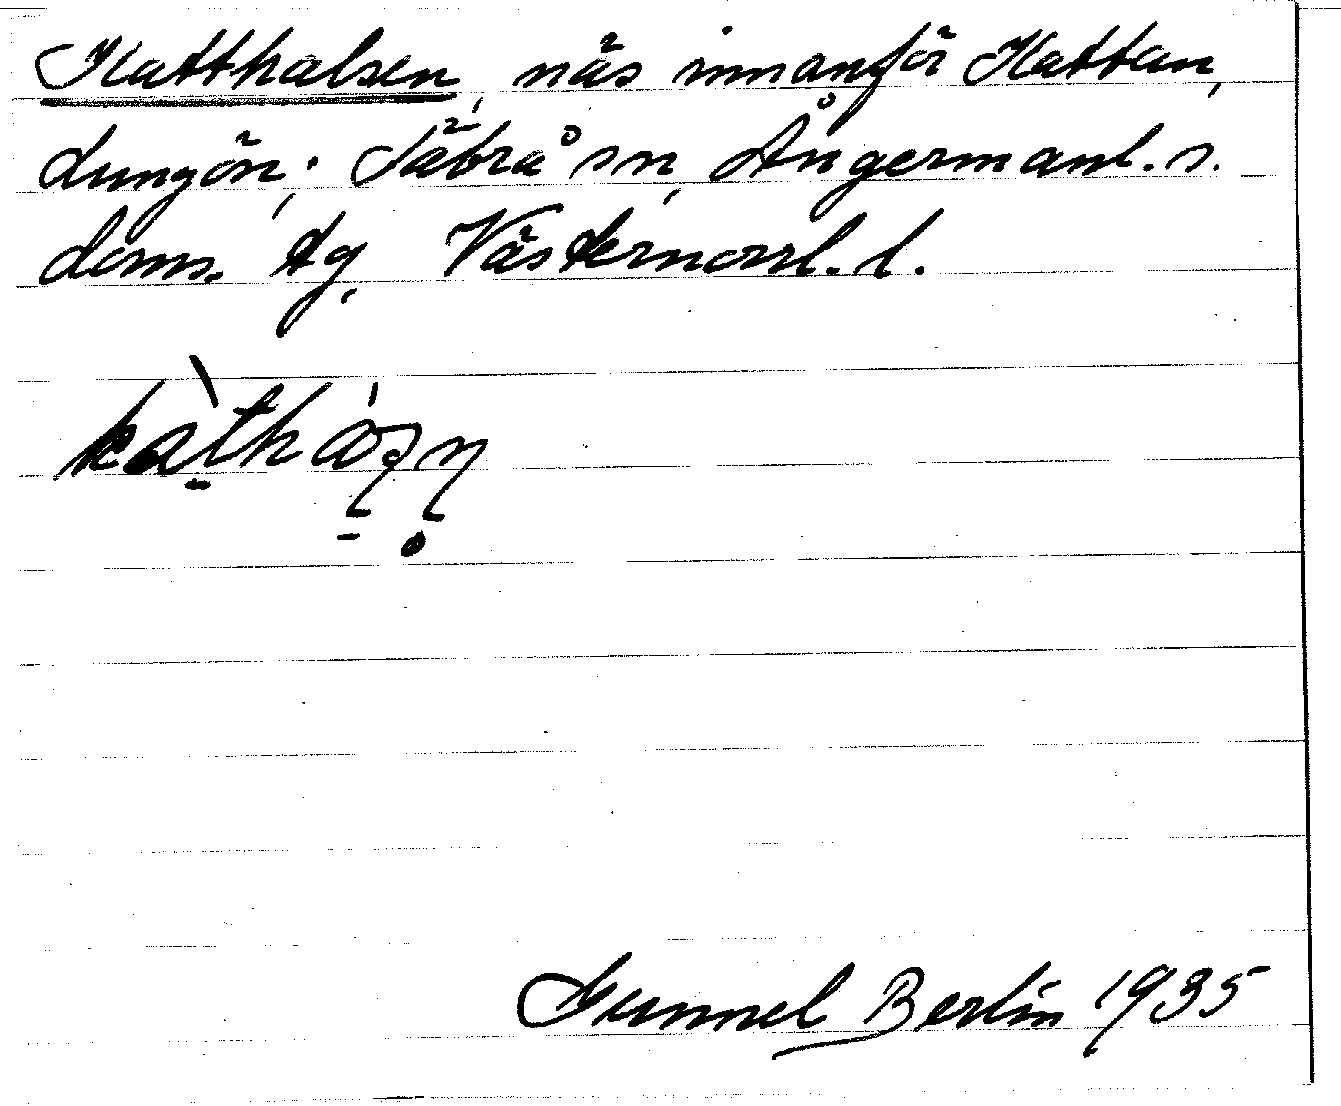 Katthalsen, näs innanför Kattan,
Lungön; Säbrå sn, Ångermanl. s.
doms. tg, Västernorrl. l.
Gunnel Berlin 1935